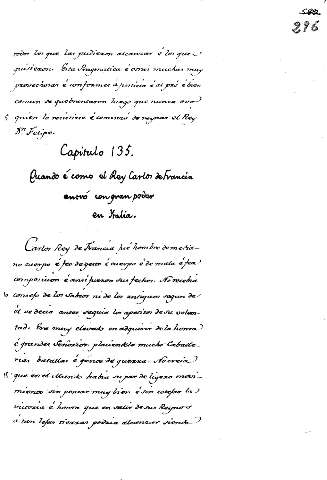 296
todos los que las pudieron alcanzar é los que
quisieron. Esta Pragmatica é otras muchas muy
provechosas é conformes a justicia é al pró é bien
comun se quebrantaron luego que nunca ovo
quien lo resistiese é comenzó de reynar el Rey
Dn Felipe.
Capitulo 135.
Quando é como el Rey Carlos de Francia
entró con gran poder
en Italia.
Carlos Rey de Francia fué hombre de media-
no cuerpo é feo de gesto é cuerpo é de mala é fea
composicion é ansi fueron sus fechos. No recibia
consejo de los sabios ni de los antiguos segun de
él se decia antes seguia los apetitos de su volun-
tad. Era muy elevado en adquirir de la honra
é grandes Señorios placiendole mucho Caballe-
rias batallas é gentes de guerra. No creia
que en el Mundo habia su par de ligero movi-
miento sin pensar muy bien é sin consejo
victoria é honra que en salir de sus Reynos
á tierras podria alcanzar siendo